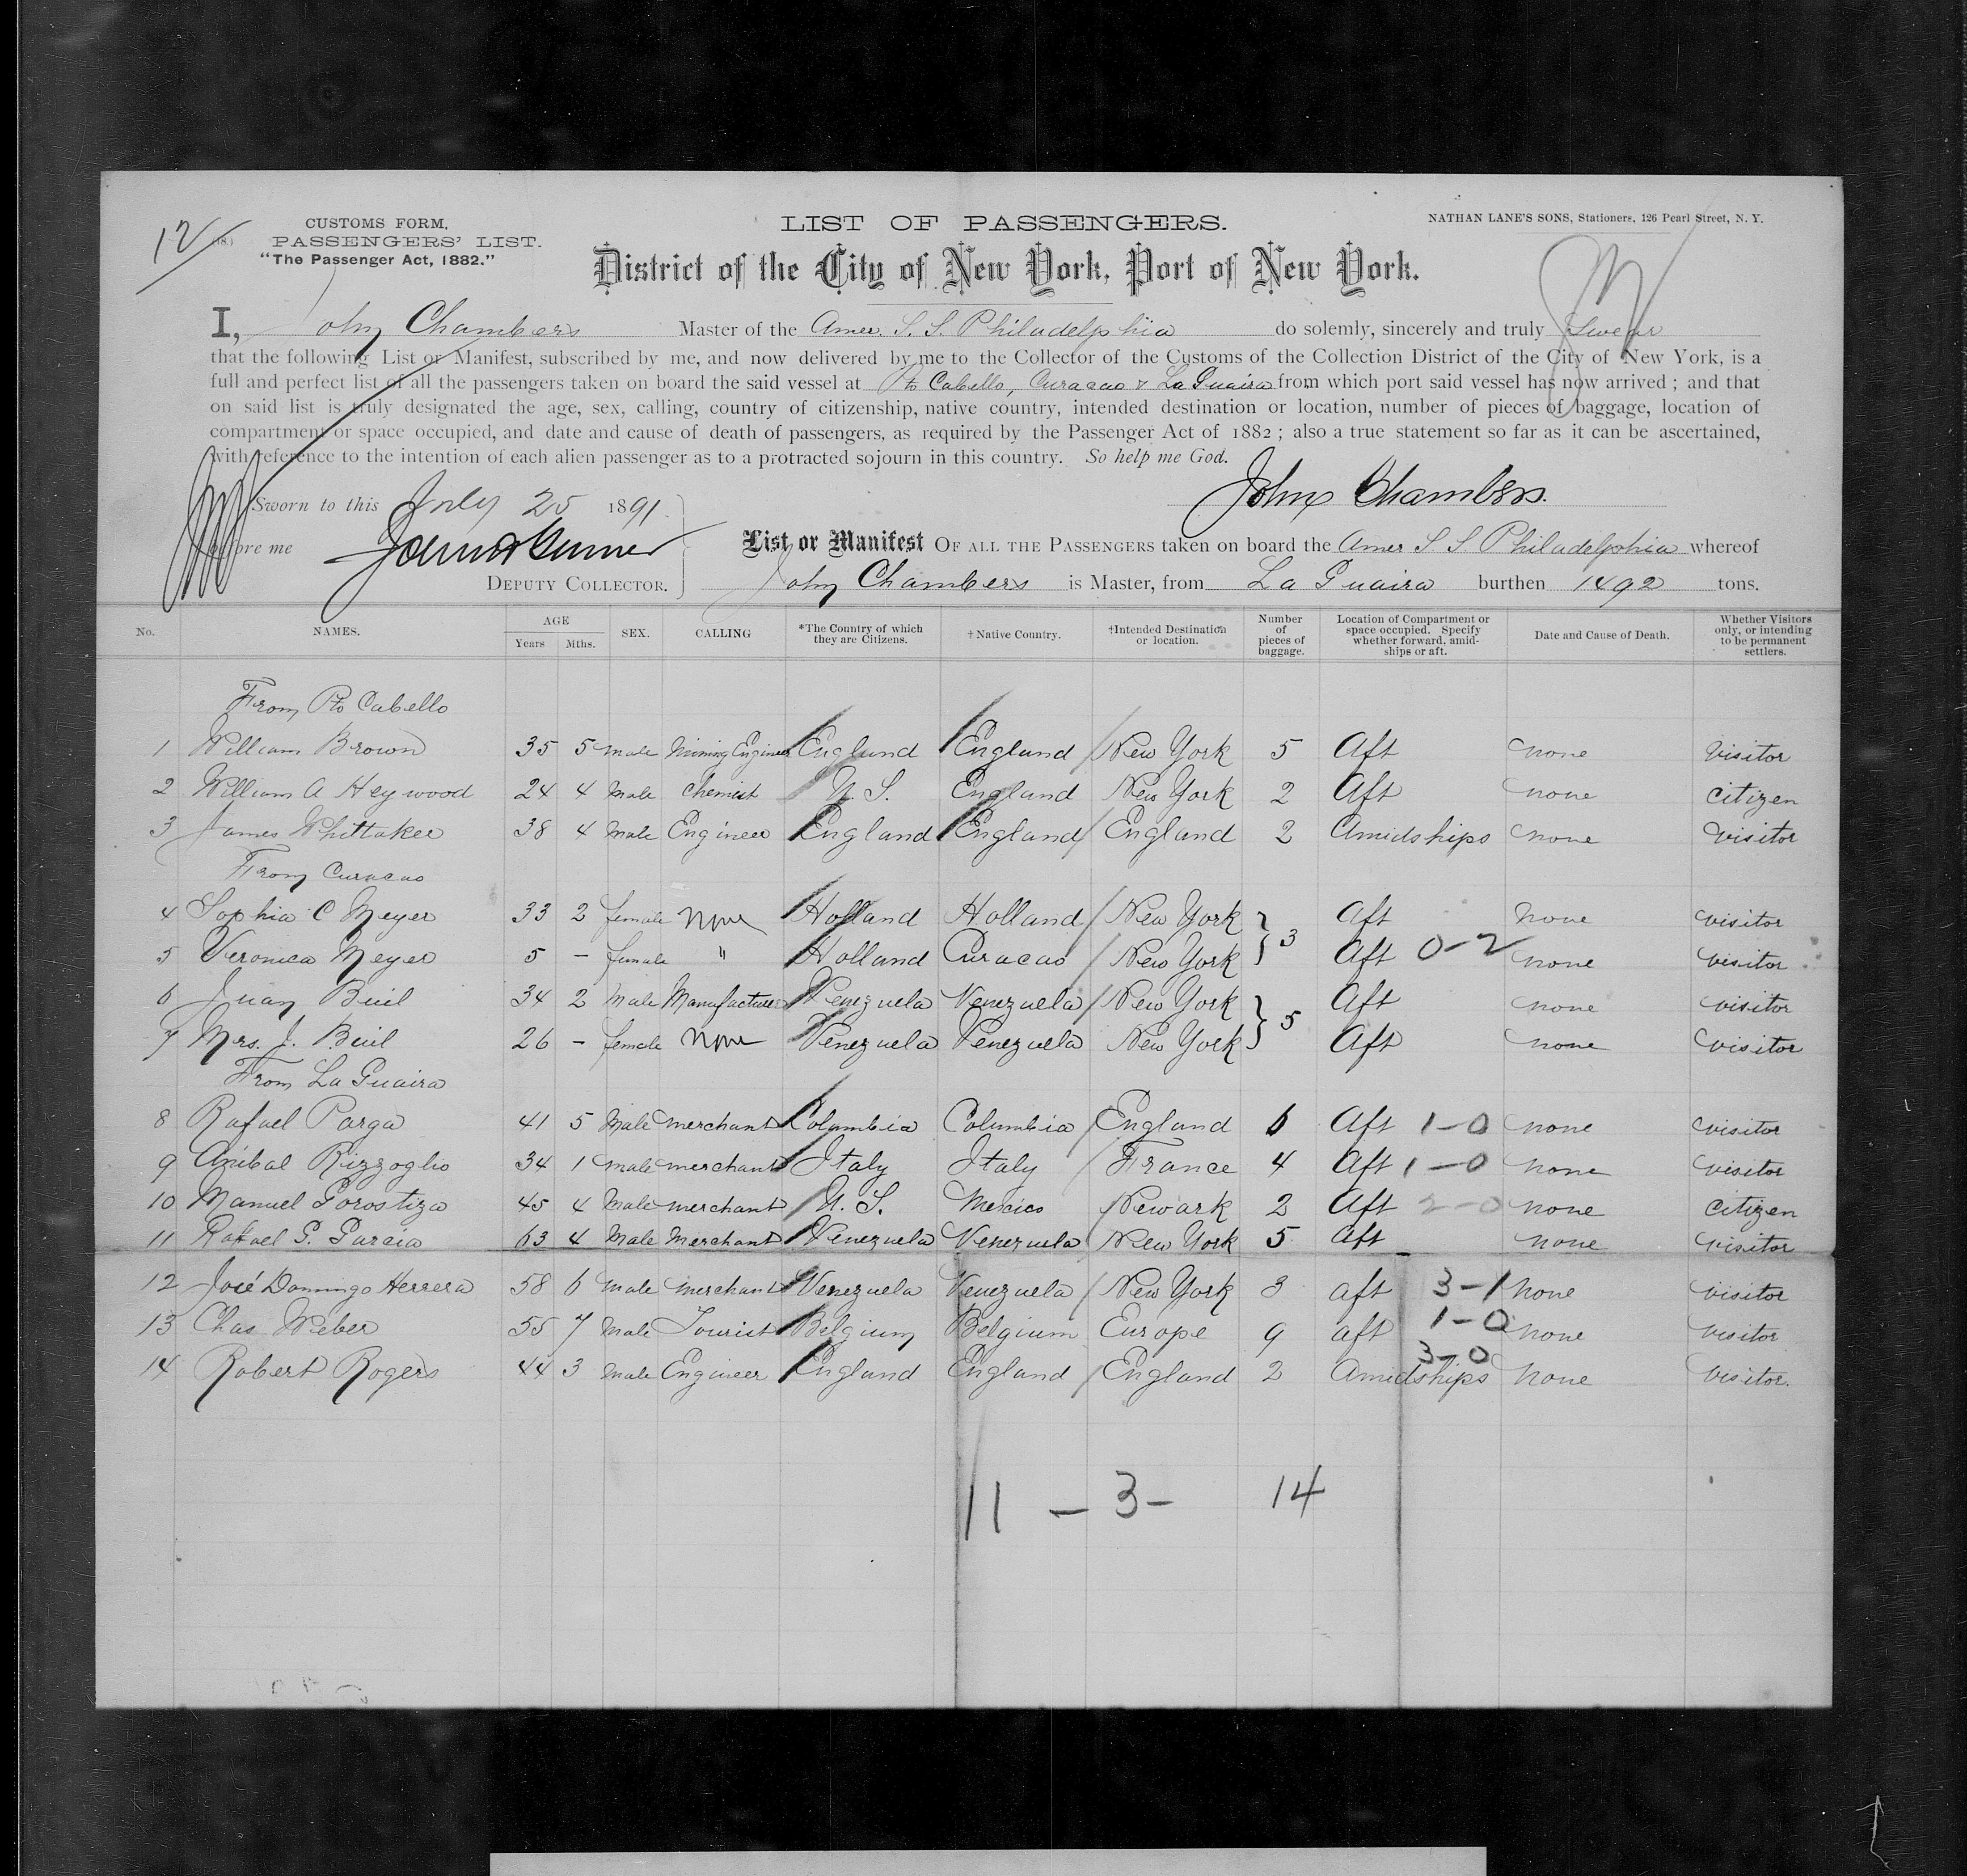 12
(18.)
CUSTOMS FORM,
PASSENGERS' LIST.
"The Passenger Act, 1882."
LIST OF PASSENGERS.
NATHAN LANE'S SONS, Stationers, 126 Pearl Street, N. Y.
District of the City of New York, Port of New York.
I, John Chambers Master of the Amer. S. S. Philadelphia do solemly, sincerely and truly Swear
that the following List or Manifest, subscribed by me, and now delivered by me to the Collector of the Customs of the Collection District of the City of New York, is a
full and perfect list of all the passengers taken on board the said vessel at Pto Cabello, Curacao & La Guaira from which port said vessel has now arrived; and that
on said list is truly designated the age, sex, calling, country of citizenship, native country, intended destination or location, number of pieces of baggage, location of
compartment or space occupied, and date and cause of death of passengers, as required by the Passenger Act of 1882; also a true statement so far as it can be ascertained,
with reference to the intention of each alien passenger as to a protracted sojourn in this country. So help me God.
John Chambers.
Sworn to this July 25 1891
before me
DEPUTY COLLECTOR.
List or Manifest OF ALL THE PASSENGERS taken on board the Amer S S Philadelphia whereof
John Chambers is Master, from La Guaira burthen 1492 tons.
No. NAMES. AGE Years Mths. SEX. CALLING *The Country of which they are Citizens. †Native Country. †Intended Destination or location. Number of pieces of baggage. Location of Compartment or space occupied. Specify whether forward, amidships or aft. Date and Cause of Death. Whether Visitors only, or intending to be permanent settlers.
From Pto Cabello
1 William Brown 35 5 male Mining Engineer England England New York 5 Aft none Visitor
2 William A Heywood 24 4 Male Chemist U. S. England New York 2 Aft none Citizen
3 James Whittaker 38 4 Male Engineer England England England 2 Amidships none Visitor
From Curacao
4 Sophia C Meyer 33 2 female None Holland Holland New York } 3 Aft none visitor
5 Veronica Meyer 5 - female " Holland Curacao New York Aft 0-2 none visitor
6 Juan Buil 34 2 Male Manufacturer Venezuela Venezuela New York } 5 Aft none visitor
7 Mrs. J. Buil 26 - female None Venezuela Venezuela New York Aft none visitor
From La Guaira
8 Rafael Parga 41 5 Male merchant Columbia Columbia England 6 Aft 1-0 none visitor
9 Anibal Rizzoglio 34 1 male merchant Italy Italy France 4 Aft 1-0 none visitor
10 Manuel Gorostiza 45 4 Male merchant U. S. Mexico Newark 2 Aft 2-0 none citizen
11 Rafael G. Garcia 63 4 Male Merchant Venezuela Venezuela New York 5 aft none visitor
12 José Domingo Herrera 58 6 male merchant Venezuela Venezuela New York 3 aft 3-1 none visitor
13 Chas Weber 55 7 Male Tourist Belgium Belgium Europe 9 aft 1-0 none visitor
14 Robert Rogers 44 3 male Engineer England England England 2 Amidships 3-0 none visitor.
11 - 3 - 14